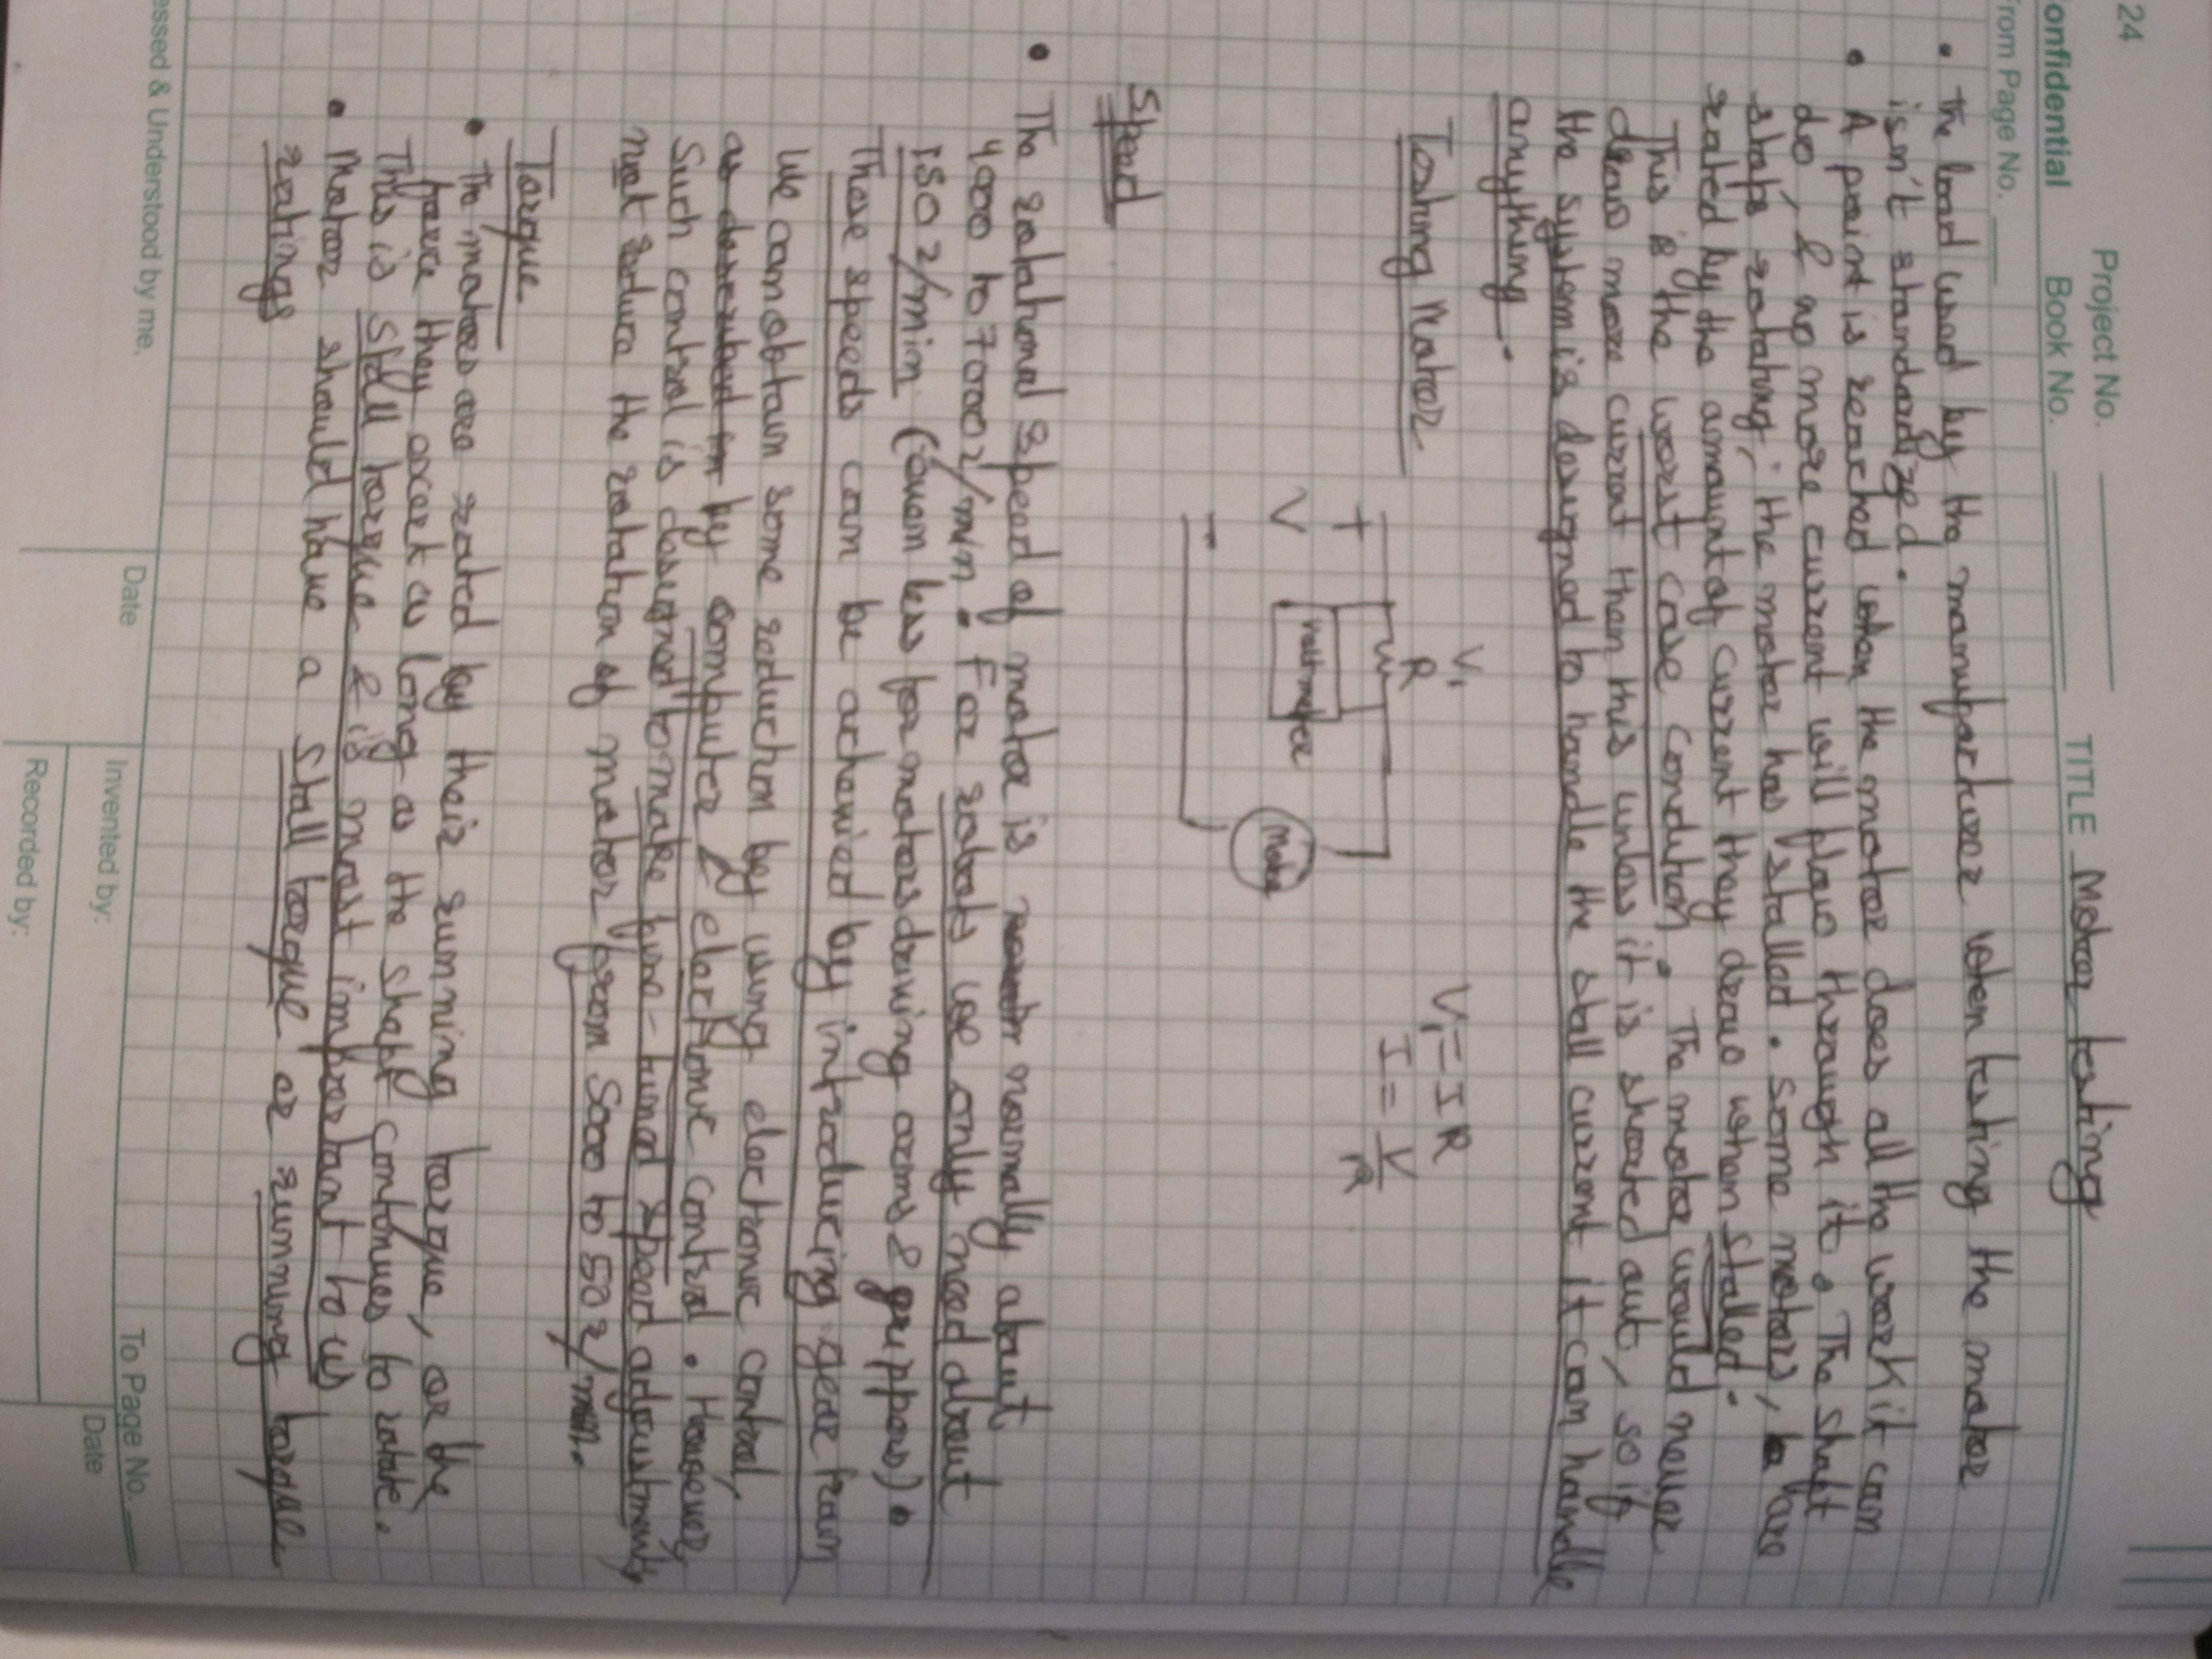 24
Project No.
onfidential
Book No.
TITLE Motor testing
From Page No.
• The load used by the manufacturer when testing the motor
isn't standardized.
• A point is reached when the motor does all the work it can
do, & no more current will flow through it. The shaft
stops rotating; the motor has 'stalled'. Some motors, are
rated by the amount of current they draw when stalled.
This is the worst case condition. The motor would never
draw more current than this unless it is shorted out, so if
the system is designed to handle the stall current it can handle
anything.
Testing Motor
V1
R
V1 = IR
I = V/R
+
V
-
Voltmeter
Motor
Speed
• The rotational speed of motor is normally about
4000 to 7000 r/min. For robots we only need about
150 r/min (even less for motors driving arms & grippers).
These speeds can be acheived by introducing gear train
We can obtain some reduction by using electronic control,
as described in by computer & electronic control. However,
such control is designed to make fine-tuned speed adjustments
not reduce the rotation of motor from 5000 to 50 r/min.
Torque
• The motors are rated by their running torque, or the
force they exert as long as the shaft continues to rotate.
This is stall torque & is most important to us
• Motor should have a stall torque or running torque
ratings
essed & Understood by me,
Date
Invented by:
Recorded by:
To Page No.
Date